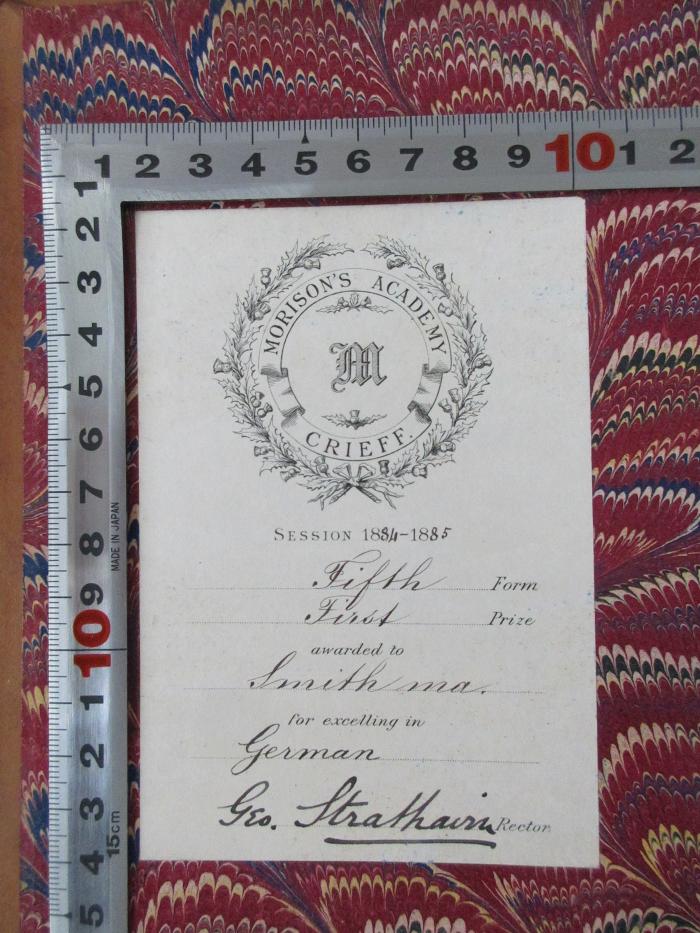 1 2 3 4 5 6 7 8 9 10 1 2
1
2
3
4
5
6
7
8
9
10
1
2
3
4
5
MADE IN JAPAN
15cm
MORISON'S ACADEMY
M
CRIEFF.
SESSION 1884-1885
Fifth Form
First Prize
awarded to
Smith ma.
for excelling in
German
Geo. Strathairn Rector